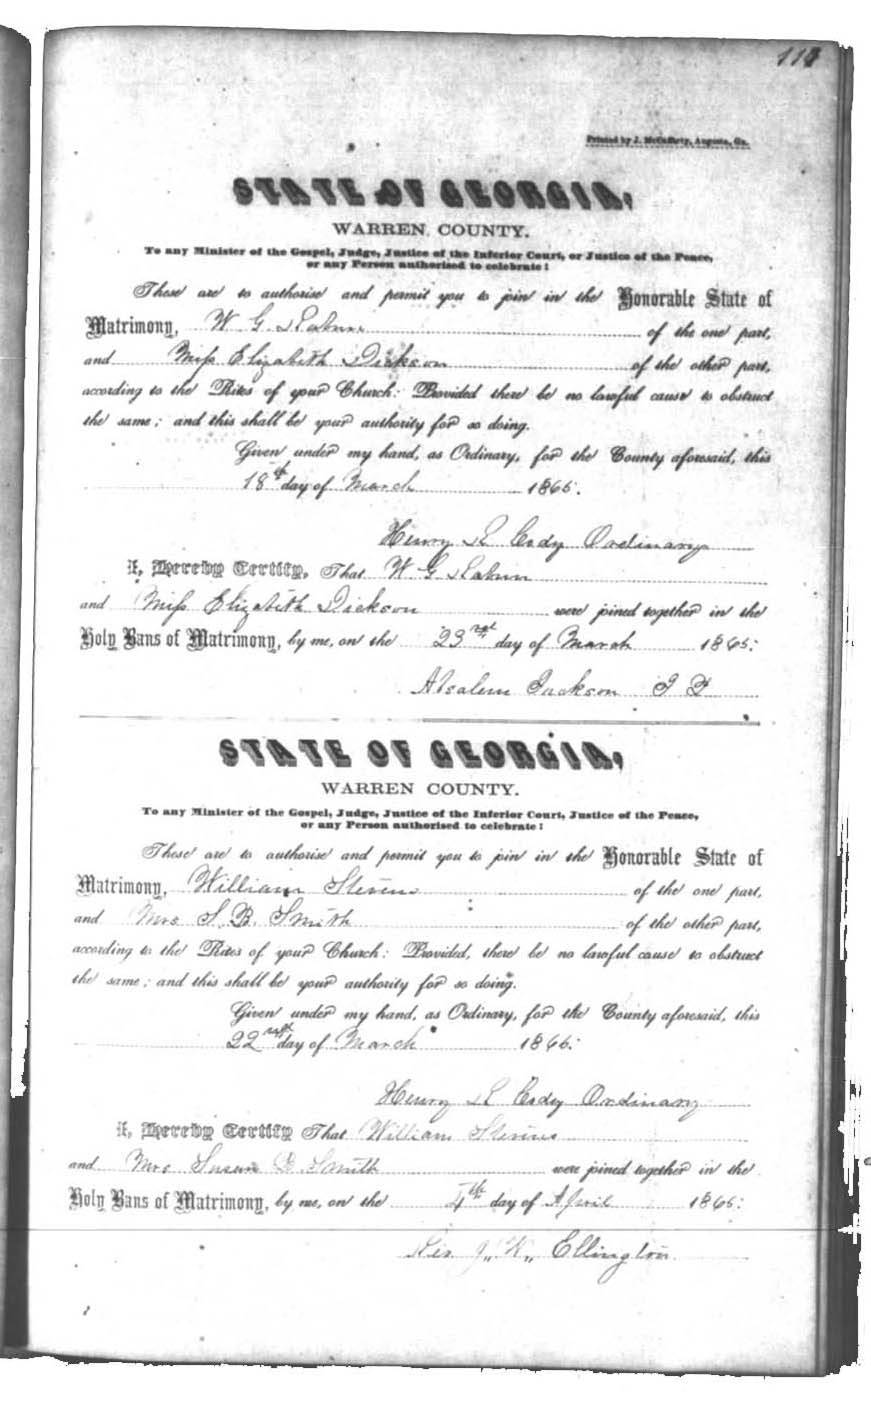 Printed by J. McCafferty, Augusta, Ga.
STATE OF GEORGIA,
WARREN COUNTY.
To any Minister of the Gospel, Judge, Justice of the Inferior Court, or Justice of the Peace,
or any Person authorised to celebrate:
These are to authorise and permit you to join in the Honorable State of
Matrimony, W G Rabun of the one part,
and Miss Elizabeth Dickson of the other part,
according to the Rites of your Church: Provided there be no lawful cause to obstruct
the same; and this shall be your authority for so doing.
Given under my hand, as Ordinary, for the County aforesaid, this
18th day of March 1865.
Henry R Cody Ordinary
I, Hereby Certify, That W G Rabun
and Miss Elizabeth Dickson were joined together in the
Holy Bans of Matrimony, by me, on the 23rd day of March 1865:
Absalem Jackson
STATE OF GEORGIA,
WARREN COUNTY.
To any Minister of the Gospel, Judge, Justice of the Inferior Court, Justice of the Peace,
or any Person authorised to celebrate:
These are to authorise and permit you to join in the Honorable State of
Matrimony, William Stevens of the one part,
and Mrs S. B. Smith of the other part,
according to the Rites of your Church: Provided, there be no lawful cause to obstruct
the same; and this shall be your authority for so doing.
Given under my hand, as Ordinary, for the County aforesaid, this
22nd day of March 1865:
Henry R Cody Ordinary
I, Hereby Certify That William Stevens
and Mrs Susan B Smith were joined together in the
Holy Bans of Matrimony, by me, on the 4th day of April 1865:
Rev J,, W,, Ellington